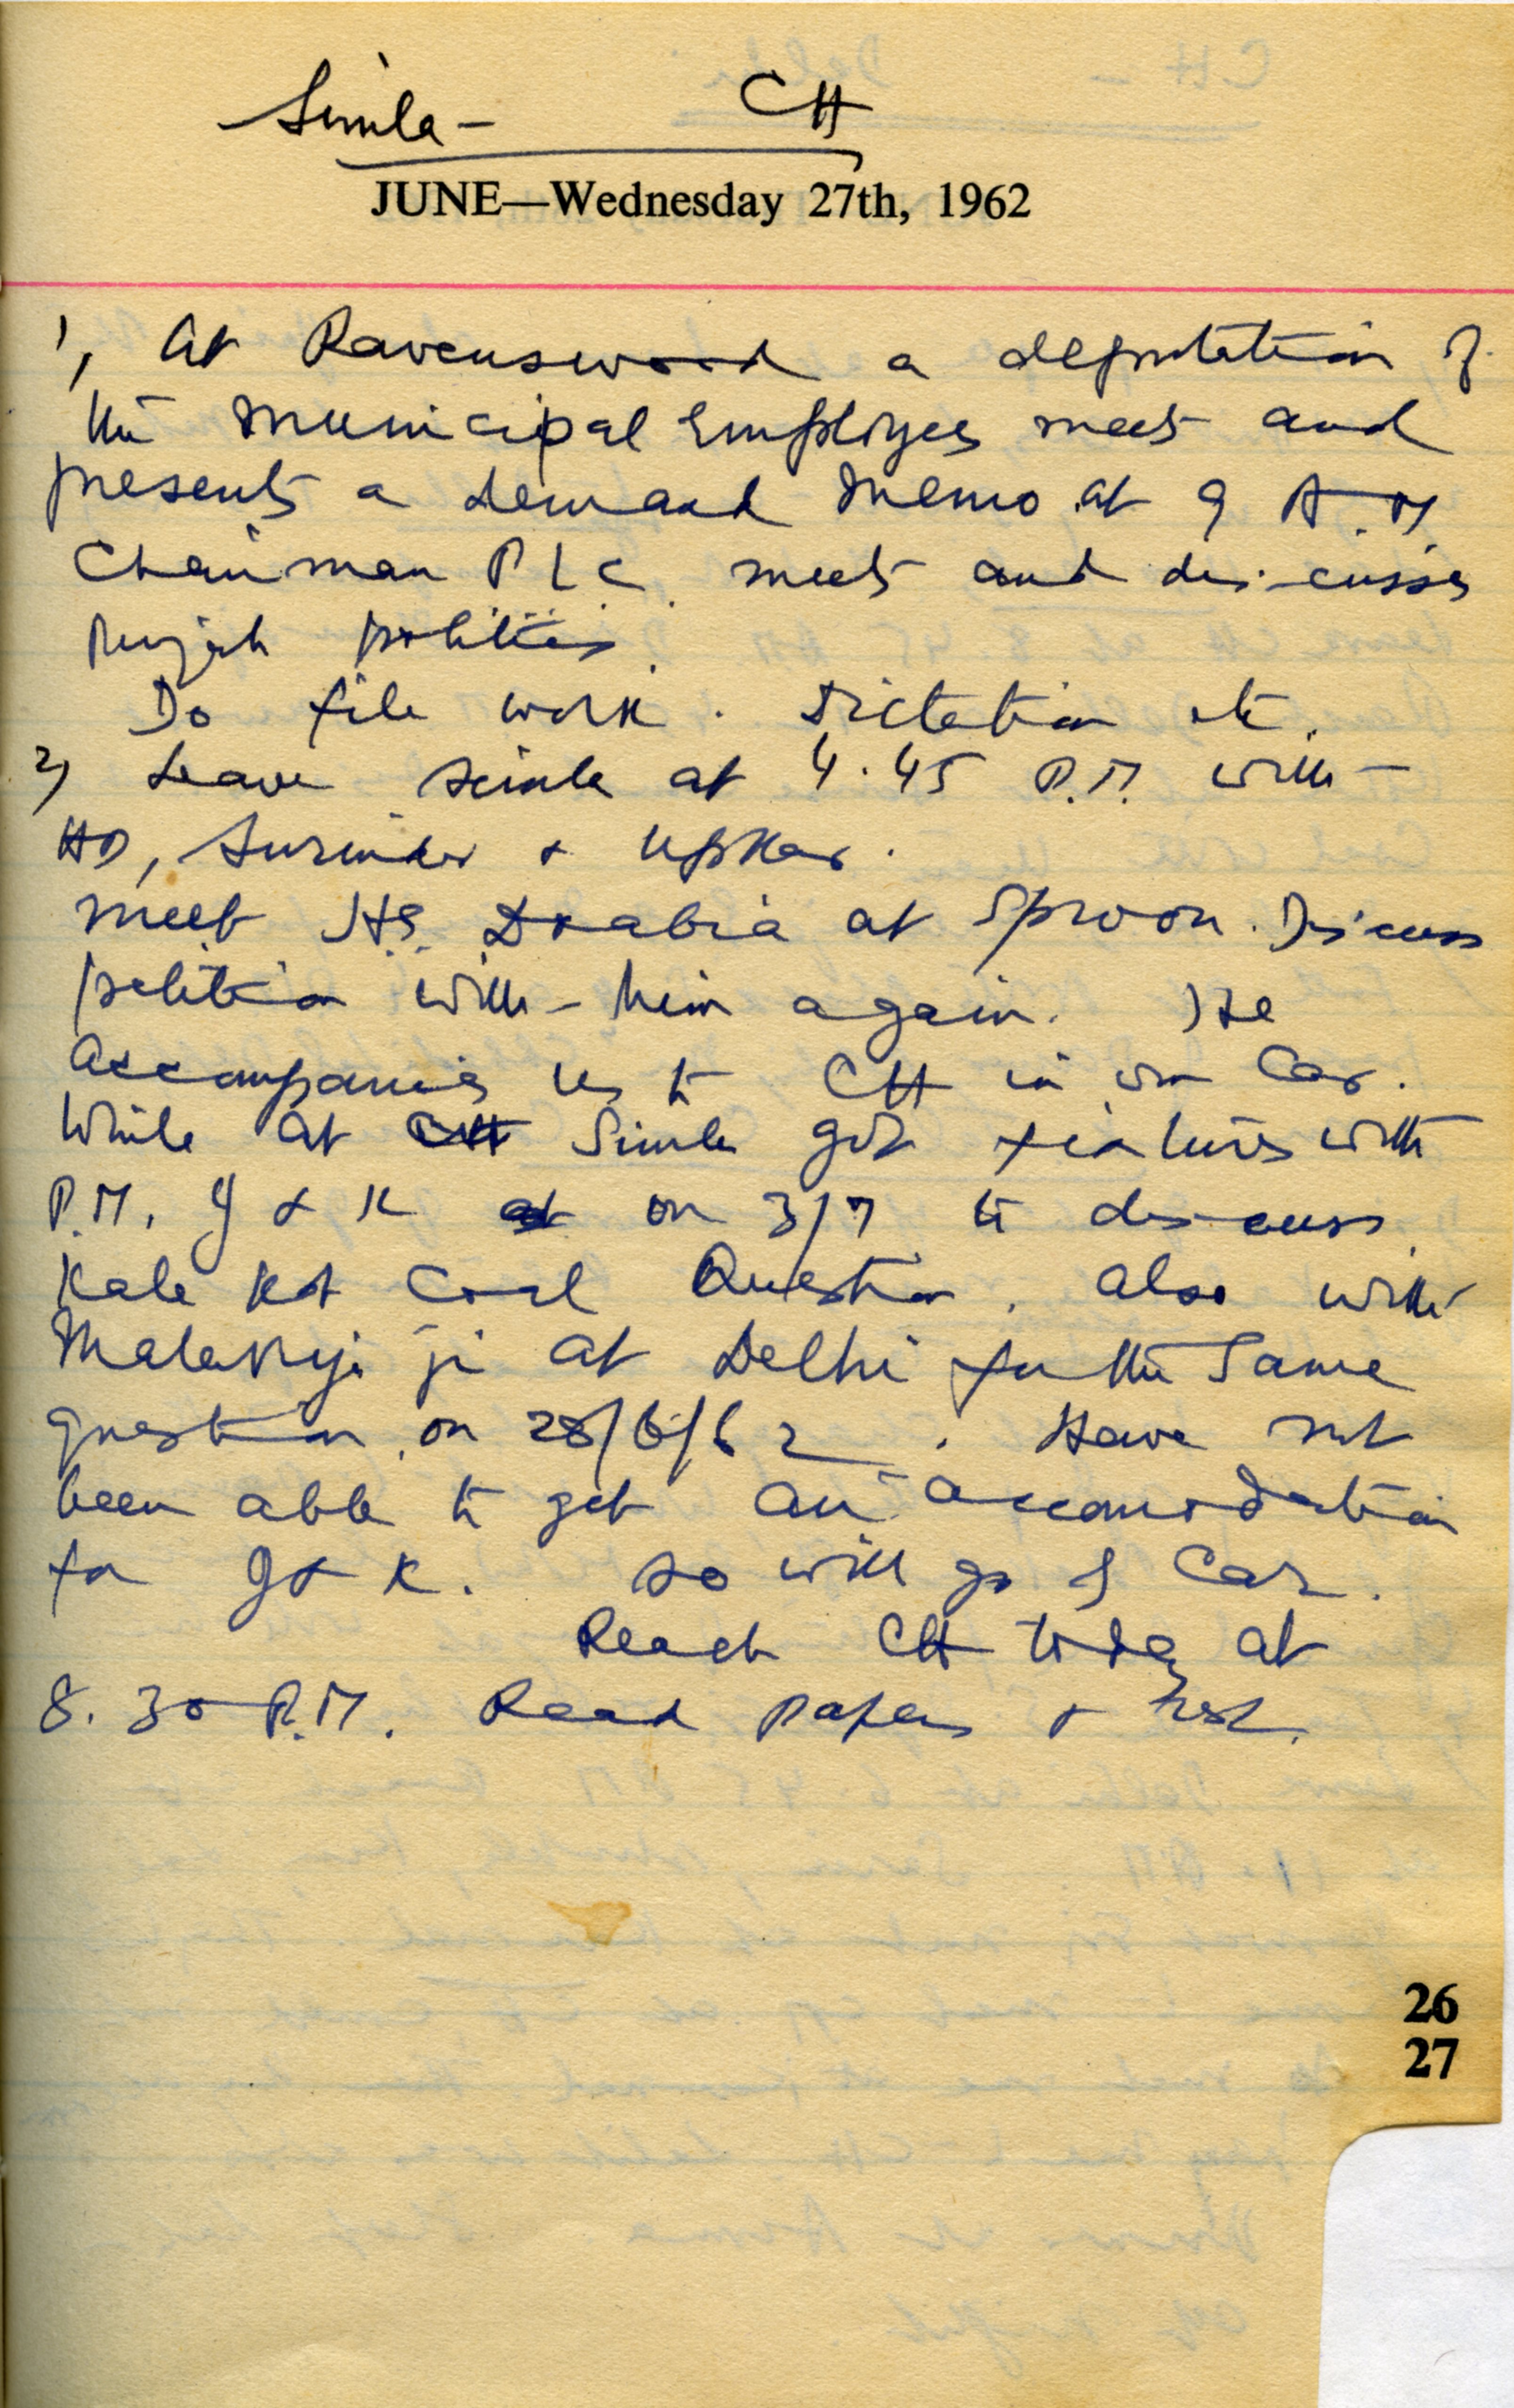 Simla - CH
JUNE—Wednesday 27th, 1962
1, At Ravenswood a deputation of
the Municipal Employees meets and
presents a demand memo at 9 A.M.
Chairman P L C. meets and discusses
Punjab politics.
Do file work. Dictation etc.
2, Leave Simla at 4.45 P.M. with
HD, Surinder & Upkar.
Meet HS. Doabia at Sproon. Discuss
with him again. He
accompanies us to CH in our Car.
While at CH Simla got fixtures with
P.M. J & K at on 3/7 to discuss
Kala Kot Coal Question. Also with
Malaviya ji at Delhi for the same
question on 28/6/62. Have not
been able to get an accomodation
for J & K. So will go by Car.
Reach CH today at
8.30 P.M. Read papers & rest.
26
27